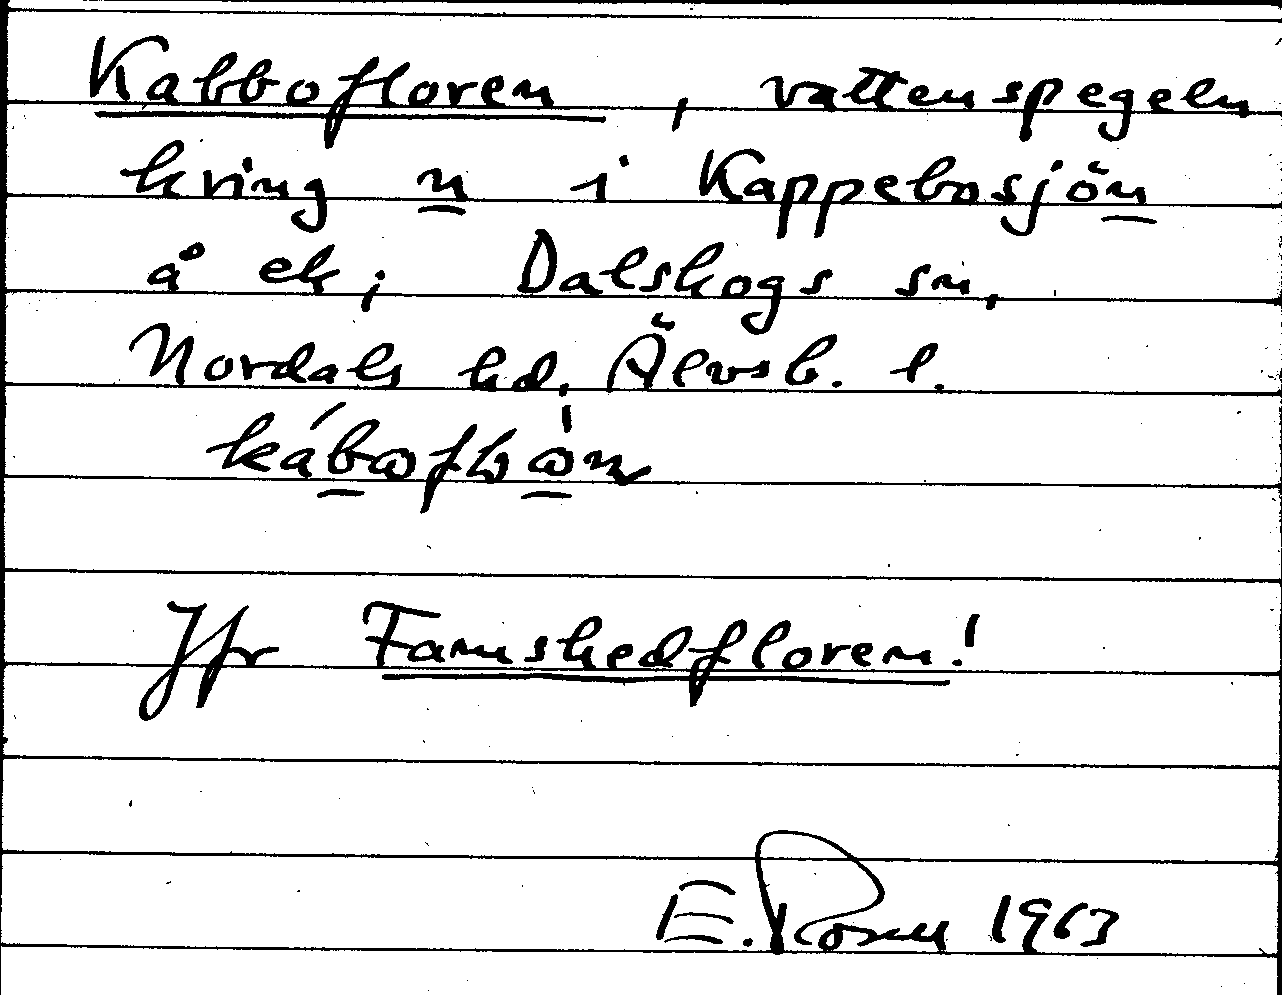 Kabbofloren, vattenspegeln
kring n i Kappebosjön
å ek; Dalskogs sn,
Nordals hd, Älvsb. l.
Jfr Famskedfloren!
E. Rosen 1963